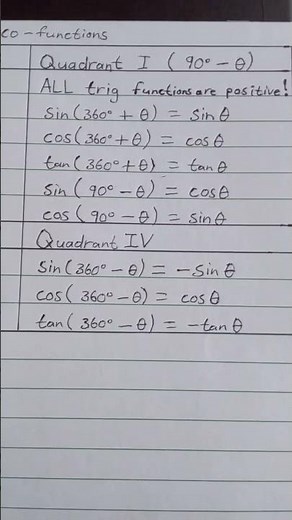 co-functions
Quadrant I (90° - θ)
ALL trig functions are positive!
sin(360° + θ) = sinθ
cos(360° + θ) = cosθ
tan(360° + θ) = tanθ
sin(90° - θ) = cosθ
cos(90° - θ) = sinθ
Quadrant IV
sin(360° - θ) = -sinθ
cos(360° - θ) = cosθ
tan(360° - θ) = -tanθ